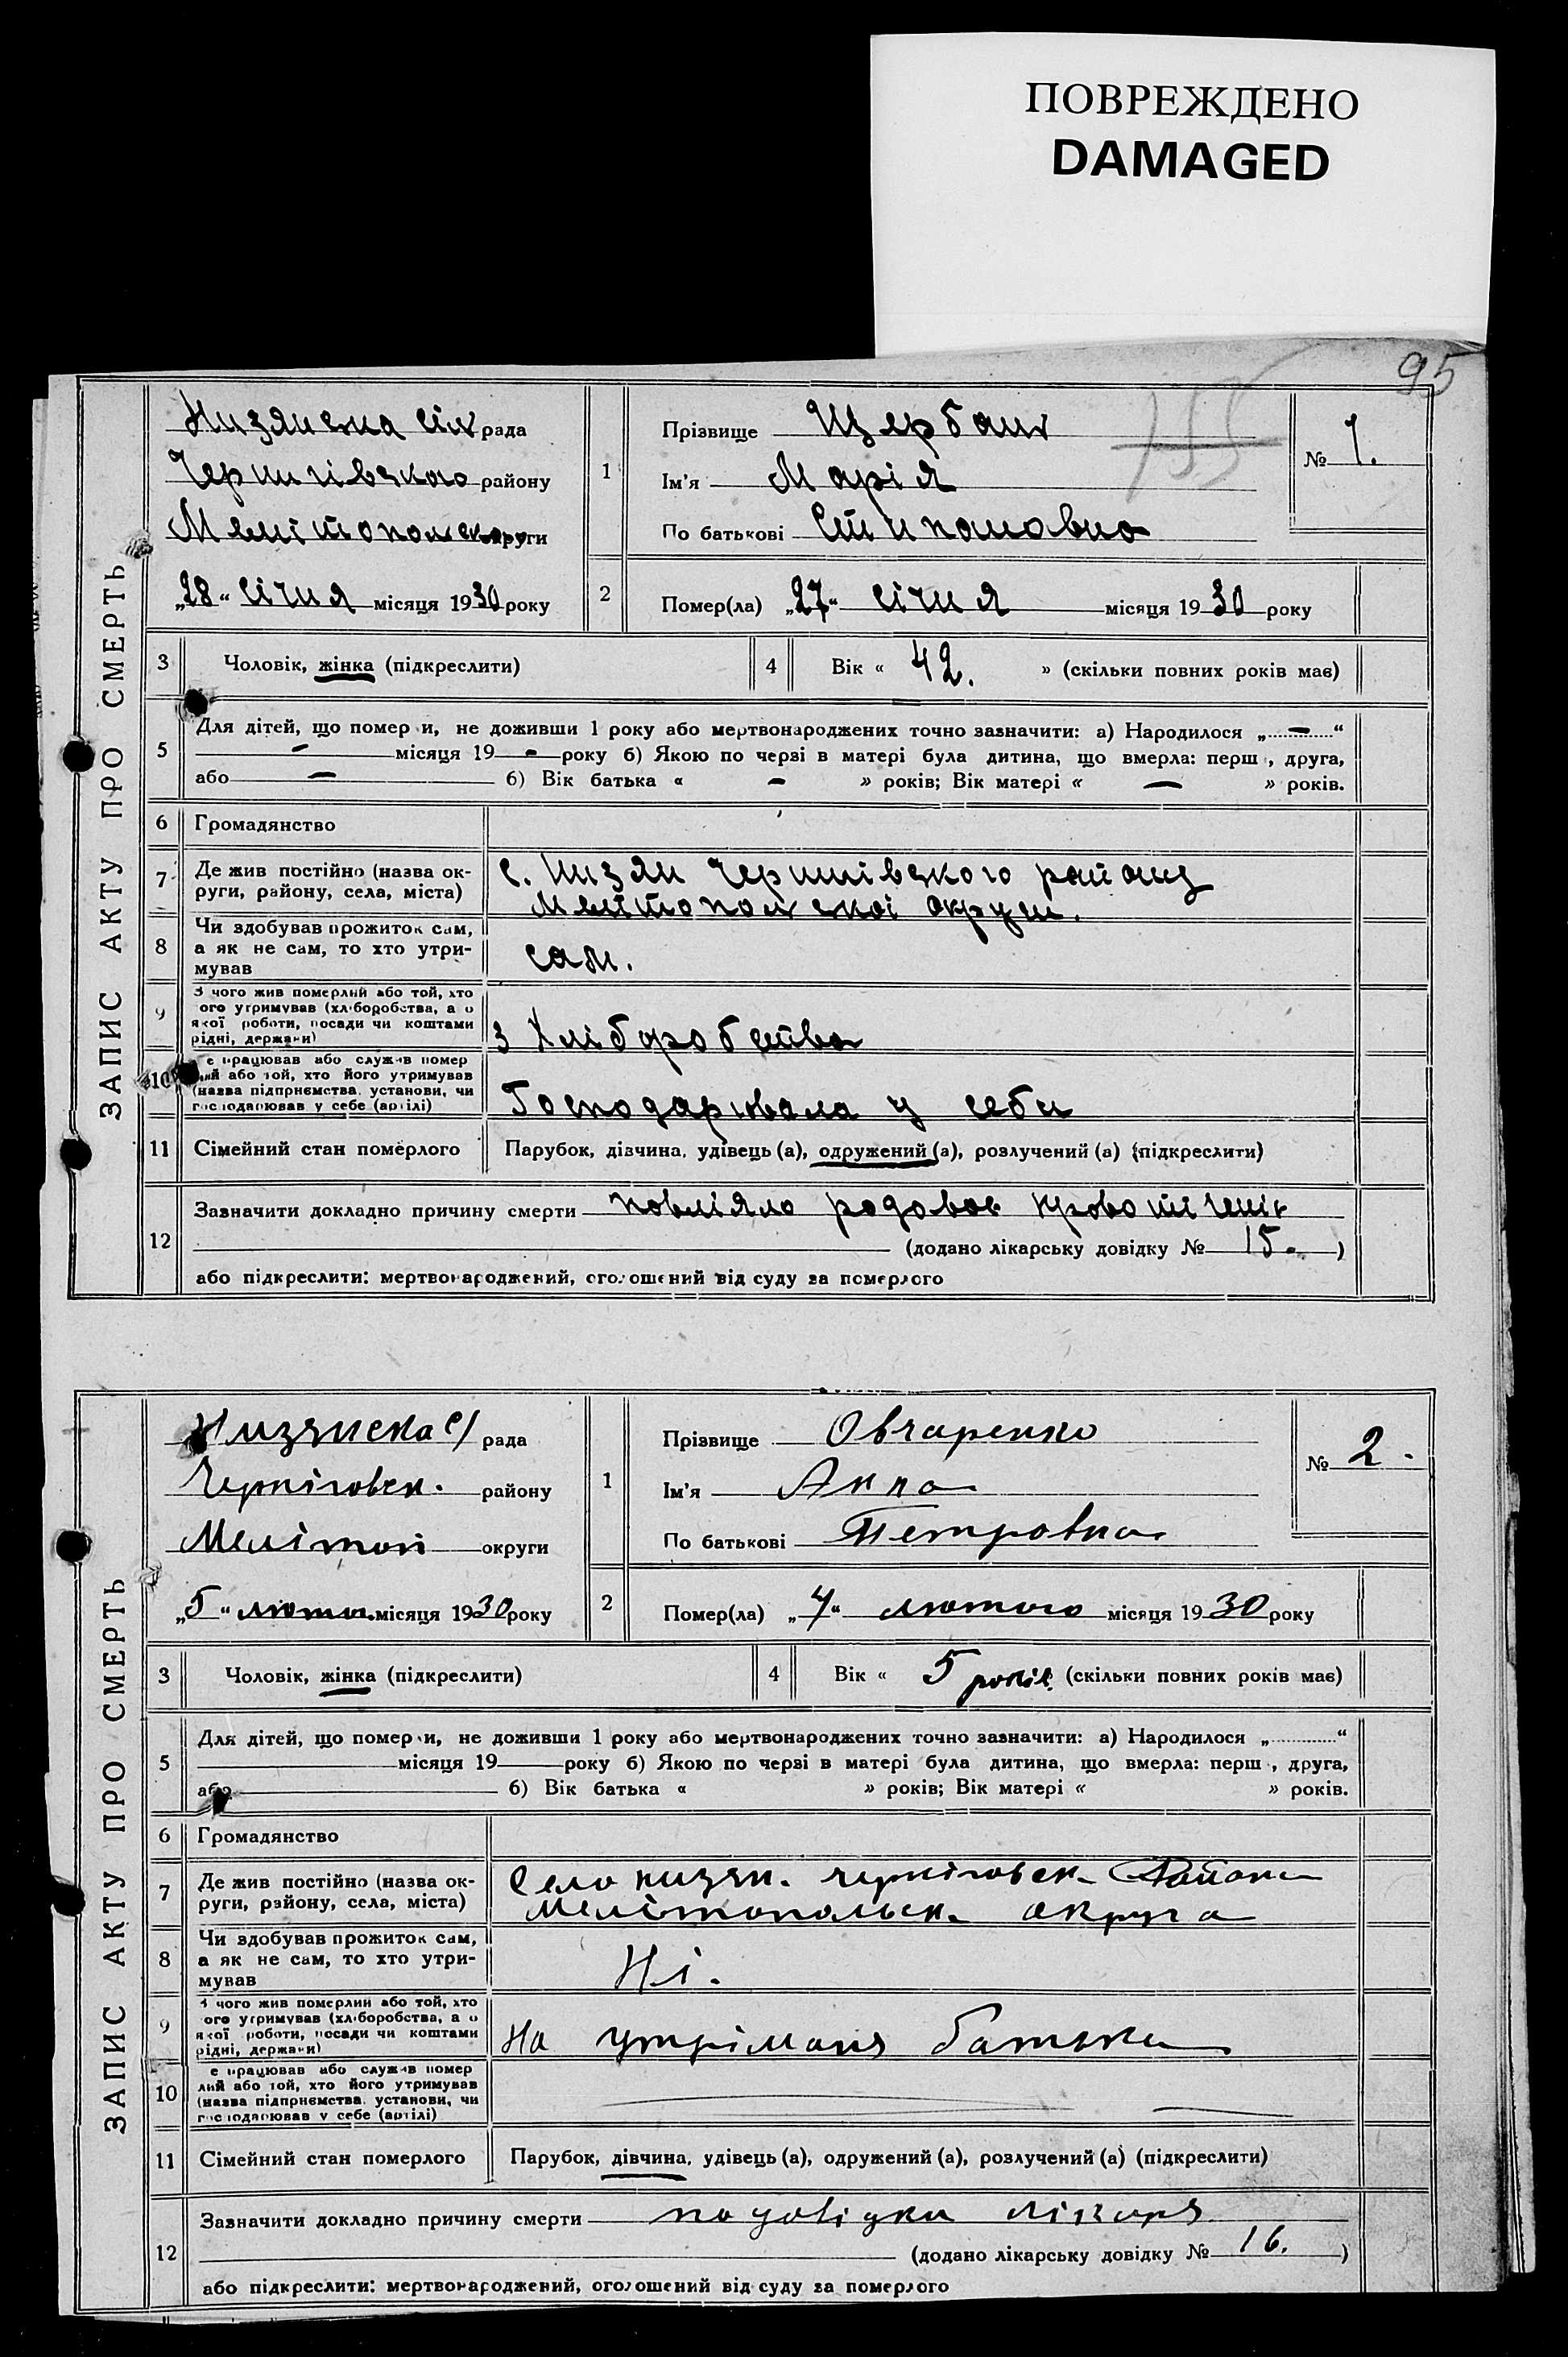 ПОВРЕЖДЕНО
DAMAGED
95
155
ЗАПИС АКТУ ПРО СМЕРТЬ
Низянська сілрада
Чернигівзкого району
Мелітопольскокруги
„28“ січня місяця 1930 року
1
Прізвище Щербань
Ім’я Марія
По батькові Степановна
№ 1.
2
Помер(ла) „27“ січня місяця 1930 року
3 Чоловік, жінка (підкреслити)
4 Вік « 42. » (скільки повних років має)
5 Для дітей, що помер и, не доживши 1 року або мертвонароджених точно зазначити: а) Народилося „ — “
— місяця 19 - року б) Якою по черзі в матері була дитина, що вмерла: перш , друга,
або — б) Вік батька « - » років; Вік матері « — » років.
6 Громадянство
7 Де жив постійно (назва ок-
руги, району, села, міста)
с. Низян Чернигівзкого району
Мелітопольскої округи.
8 Чи здобував прожиток сам,
а як не сам, то хто утри-
мував
сам.
9 З чого жив померлий або той, хто
ого утримував (хліборобства, а о
якої роботи, посади чи коштами
рідні, держави)
З Хліборобства
10 е працював або служив помер
лий або той, хто його утримував
(назва підприємства, установи, чи
господарював у себе (артілі)
Господарювала у себи
11 Сімейний стан померлого Парубок, дівчина, удівець (а), одружений (а), розлучений (а) (підкреслити)
12 Зазначити докладно причину смерти повліяло родовое кровотічение
(додано лікарську довідку № 15. )
або підкреслити: мертвонароджений, оголошений від суду за померлого
ЗАПИС АКТУ ПРО СМЕРТЬ
Низянска с/ рада
Черніговск. району
Мелітоп округи
„5“ люто місяця 1930 року
1
Прізвище Овчаренко
Ім’я Анна
По батькові Петровна
№ 2.
2
Помер(ла) „4“ лютого місяця 1930 року
3 Чоловік, жінка (підкреслити)
4 Вік « 5 років. (скільки повних років має)
5 Для дітей, що помер и, не доживши 1 року або мертвонароджених точно зазначити: а) Народилося „ “
місяця 19 року б) Якою по черзі в матері була дитина, що вмерла: перш , друга,
або б) Вік батька « » років; Вік матері « » років.
6 Громадянство
7 Де жив постійно (назва ок-
руги, району, села, міста)
Село низян. чернiговск. Району
Мелітопольск. округа
8 Чи здобував прожиток сам,
а як не сам, то хто утри-
мував
Ні.
9 З чого жив померлий або той, хто
ого утримував (хліборобства, а о
якої роботи, посади чи коштами
рідні, держави)
На утріманя батька
10 е працював або служив помер
лий або той, хто його утримував
(назва підприємства, установи, чи
господарював у себе (артілі)
11 Сімейний стан померлого Парубок, дівчина, удівець (а), одружений (а), розлучений (а) (підкреслити)
12 Зазначити докладно причину смерти по довідки лікаря
(додано лікарську довідку № 16. )
або підкреслити: мертвонароджений, оголошений від суду за померлого